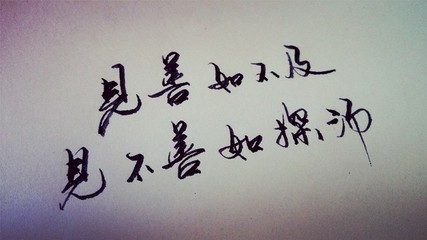 見善如不及
見不善如探湯